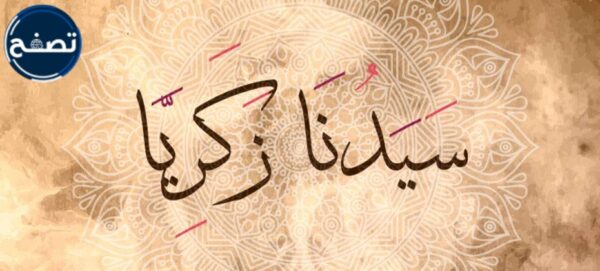 تصفح
سَيَدُنَا زَكَرِيَّا